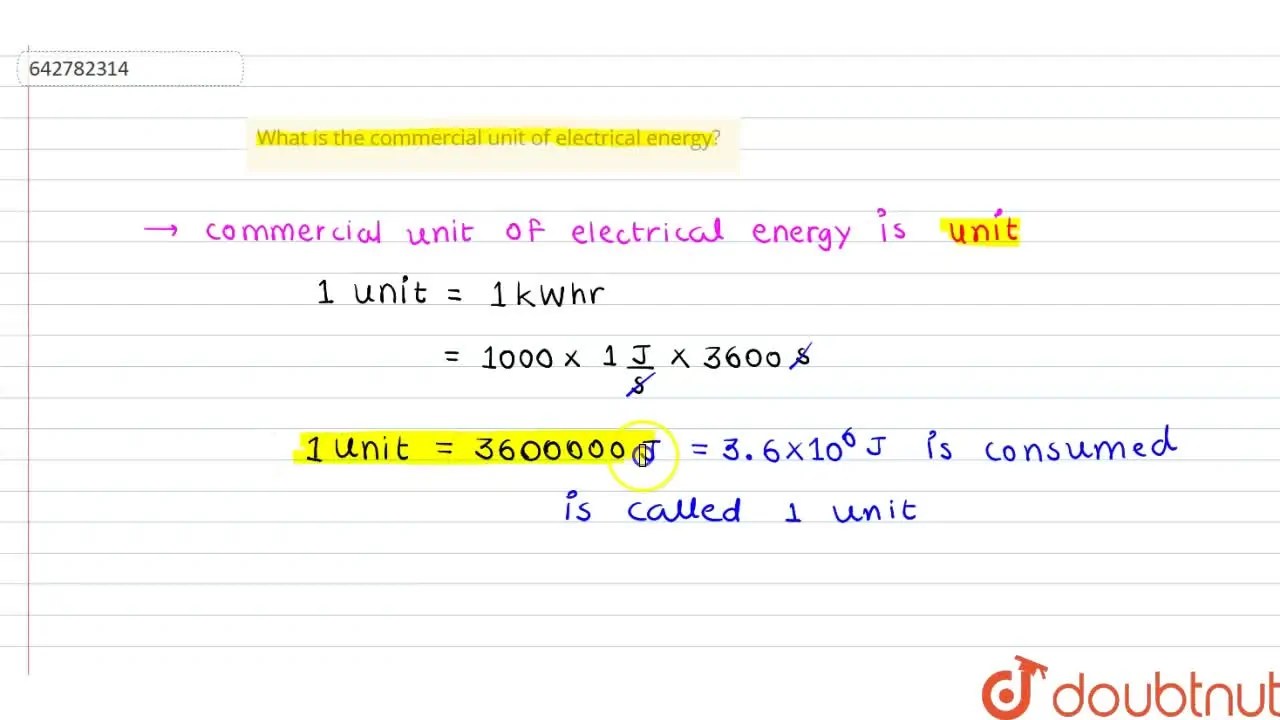 642782314
What is the commercial unit of electrical energy?
→ commercial unit of electrical energy is unit
1 unit = 1 kWhr
= 1000 × 1 J/s × 3600 s
1 unit = 3600000 J = 3.6×10⁶ J is consumed
is called 1 unit
doubtnut